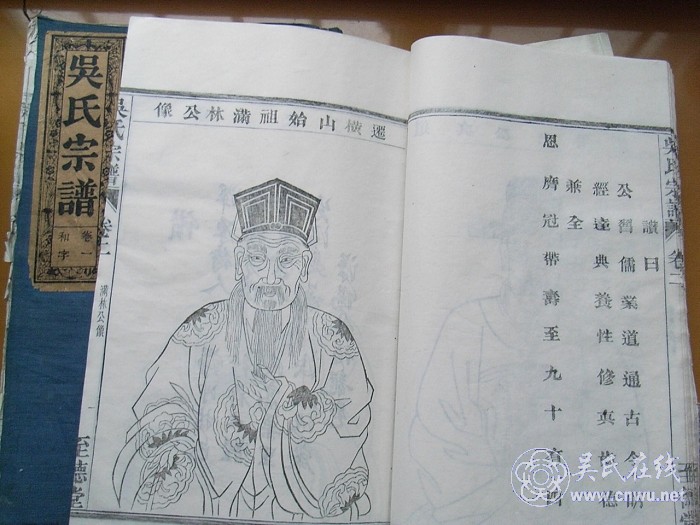 吳氏宗譜
卷一
和字
遷橫山始祖滿林公像
吳氏宗譜
卷二
滿林公像
至德堂
吳氏宗譜
卷二
讚曰
公習儒業道通古今
經達典養性修真
德
兼全
恩膺冠帶壽至九十
吴氏在线
www.cnwu.net